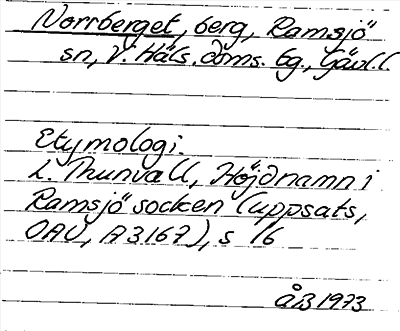 Norrberget, berg, Ramsjö
sn, V. Häls. doms. tg., Gävl. l.
Etymologi.
L. Thunvall, Höjdnamn i
Ramsjö socken (uppsats,
OAU, A 3167), s 16
ÅB 1973